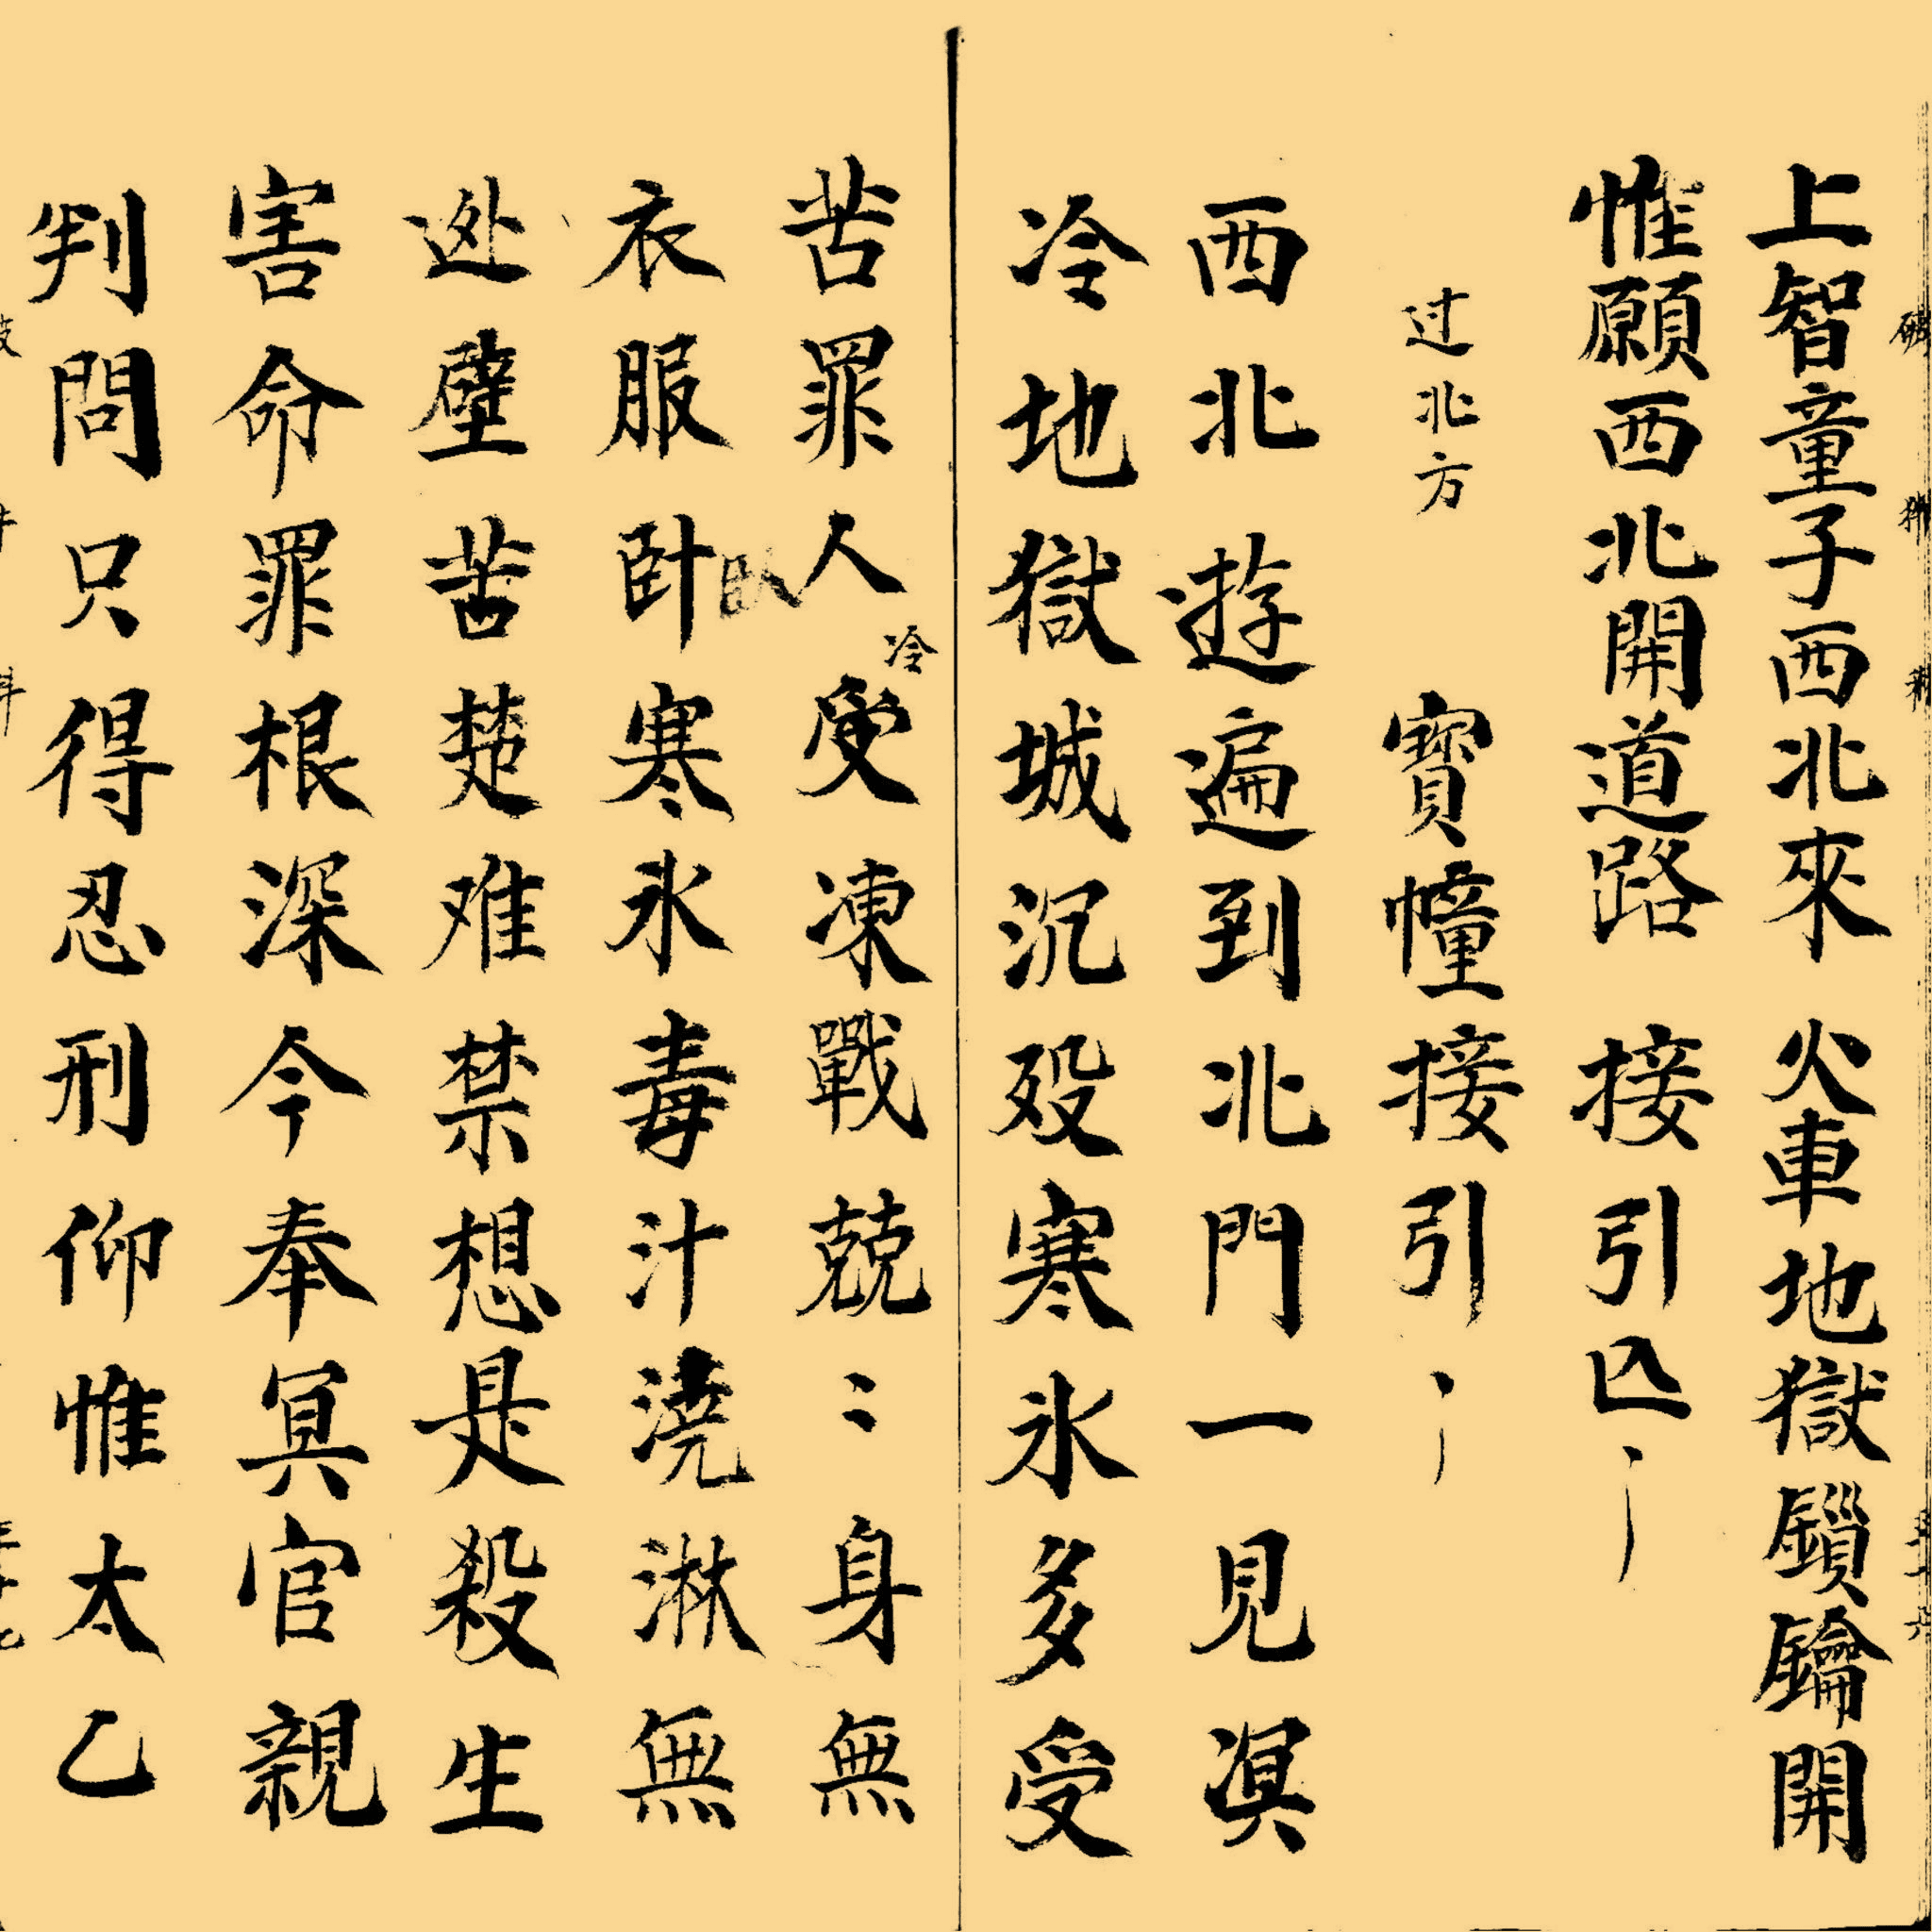 上智童子西北來　火車地獄鎖鑰開
惟願西北開道路　接引亾
过北方　寶幢接引
西北遊遍到北門一見溟
冷地獄城沉歿寒氷多受
苦罪人受冷凍戰兢〻身無
衣服卧臥寒氷毒汁澆淋無
迯壁苦楚难禁想是殺生
害命罪根深今奉冥官親
判問只得忍刑仰惟太乙